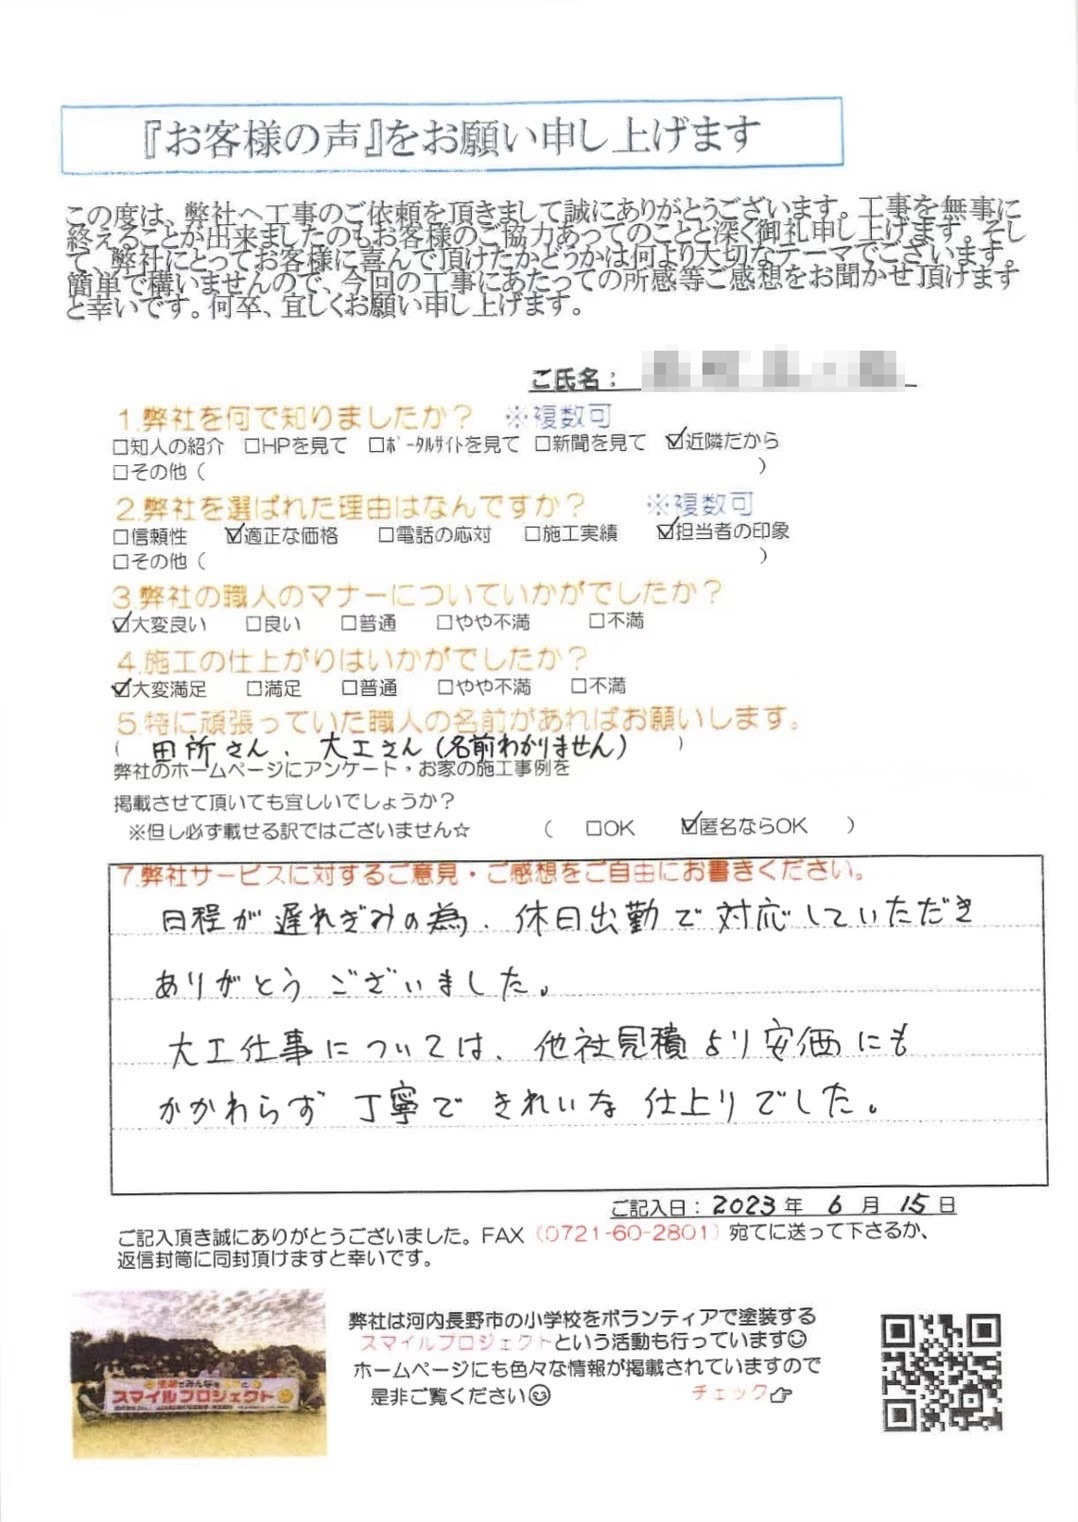 『お客様の声』をお願い申し上げます
この度は、弊社へ工事のご依頼を頂きまして誠にありがとうございます。工事を無事に
終えることが出来ましたのもお客様のご協力あってのことと深く御礼申し上げます。そし
て、弊社にとってお客様に喜んで頂けたかどうかは何より大切なテーマでございます。
簡単で構いませんので、今回の工事にあたっての所感等ご感想をお聞かせ頂けます
と幸いです。何卒、宜しくお願い申し上げます。
ご氏名：
1.弊社を何で知りましたか？ ※複数可
□知人の紹介 □HPを見て □ﾎﾟｰﾀﾙｻｲﾄを見て □新聞を見て ☑近隣だから
□その他（ ）
2.弊社を選ばれた理由はなんですか？ ※複数可
□信頼性 ☑適正な価格 □電話の応対 □施工実績 ☑担当者の印象
□その他（ ）
3.弊社の職人のマナーについていかがでしたか？
☑大変良い □良い □普通 □やや不満 □不満
4.施工の仕上がりはいかがでしたか？
☑大変満足 □満足 □普通 □やや不満 □不満
5.特に頑張っていた職人の名前があればお願いします。
（ 田所さん、大工さん（名前わかりません） ）
弊社のホームページにアンケート・お家の施工事例を
掲載させて頂いても宜しいでしょうか？
※但し必ず載せる訳ではございません☆ （ □OK ☑匿名ならOK ）
7.弊社サービスに対するご意見・ご感想をご自由にお書きください。
日程が遅れぎみの為、休日出勤で対応していただき
ありがとうございました。
大工仕事については、他社見積より安価にも
かかわらず丁寧できれいな仕上りでした。
ご記入日：2023年 6月 15日
ご記入頂き誠にありがとうございました。FAX（0721-60-2801）宛てに送って下さるか、
返信封筒に同封頂けますと幸いです。
弊社は河内長野市の小学校をボランティアで塗装する
スマイルプロジェクトという活動も行っています😊
ホームページにも色々な情報が掲載されていますので
是非ご覧ください😊 チェック👉
スマイルプロジェクト